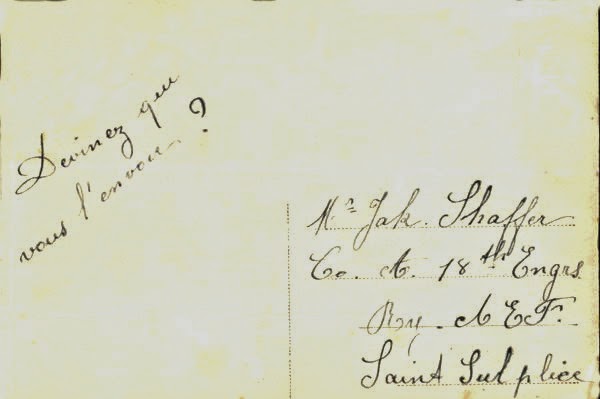 Devinez qui
vous l'envoie ?
Mr Jak. Shaffer
Co. A. 18th Engrs
Ry. A E F.
Saint Sulplice